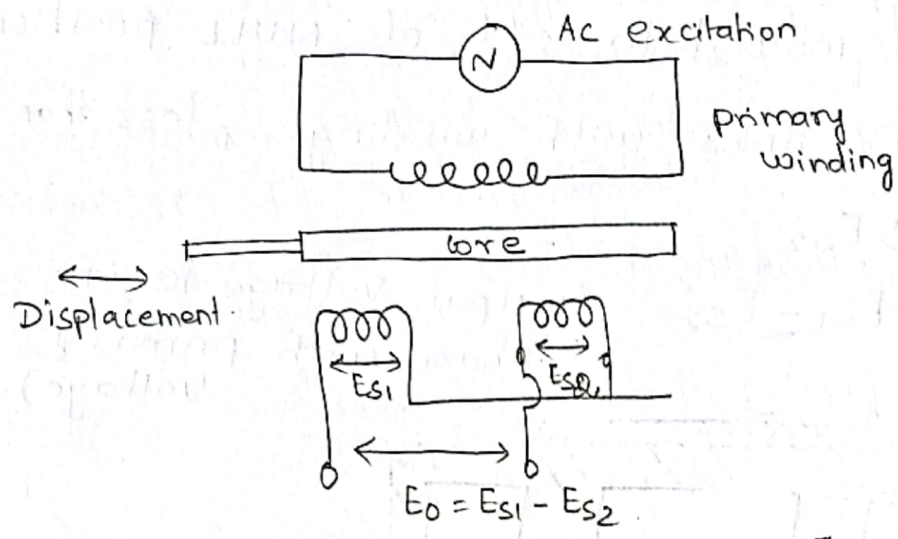 Ac excitation
N
primary
winding
core
Displacement
ES1
ES2
E0 = ES1 - ES2